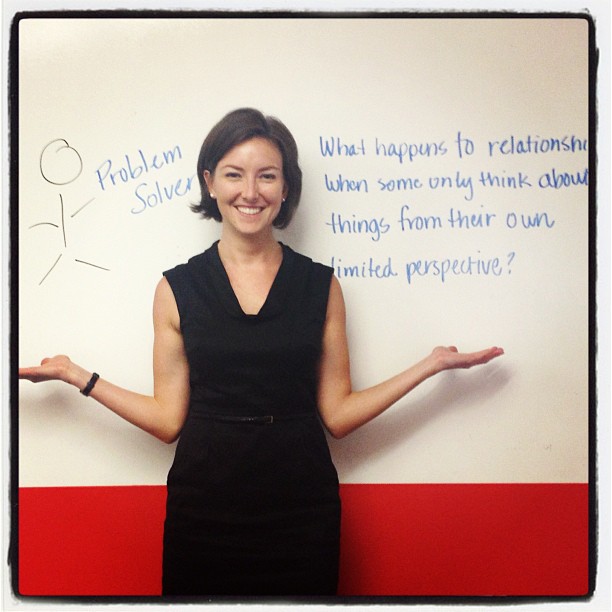 Problem
Solver
What happens to relationshi
when some only think about
things from their own
limited perspective?